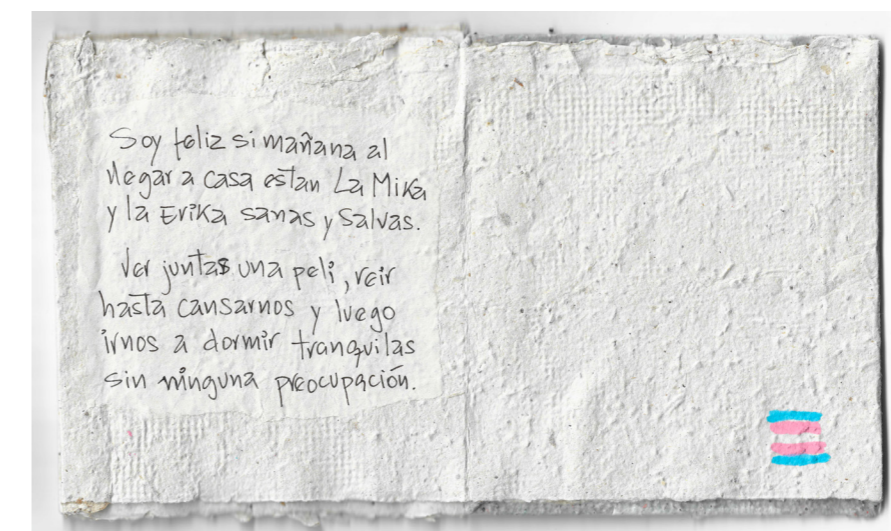 Soy feliz si mañana al
llegar a casa estan La Mika
y la Erika sanas y salvas.
Ver juntas una peli, reir
hasta cansarnos y luego
irnos a dormir tranquilas
sin ninguna preocupación.